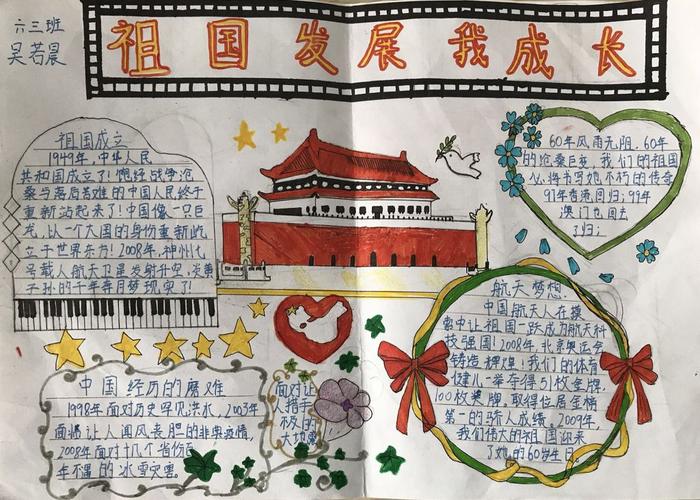 六三班
吴若晨
祖国发展 我成长
祖国成立
1949年,中华人民
共和国成立了!饱经战争沧
桑与落后苦难的中国人民终于
重新站起来了!中国像一只巨
龙,以一个大国的身份重新屹
立于世界东方!2008年,神州七
号载人航天卫星发射升空,炎黄
子孙的千年奔月梦现实了!
60年风雨无阻,60年
的沧桑巨变,我们的祖国
必将书写她不朽的传奇
97年香港回归;99年
澳门也回去
了归;
航天梦想:
中国航天人在摸
索中让祖国一跃成为航天科
技强国!2008年,北京奥运会
铸造辉煌!我们的体育
健儿一举夺得51枚金牌,
100枚奖牌,取得位居金榜
第一的骄人成绩。2009年,
我们伟大的祖国迎来
了她的60岁生日
中国经历的磨难
1998年面对历史罕见洪水,2003年
面临让人闻风丧胆的非典疫情,
2008年面对十几个省份百
年不遇的冰雪灾害。
面对让
人措手
不及的
大地震